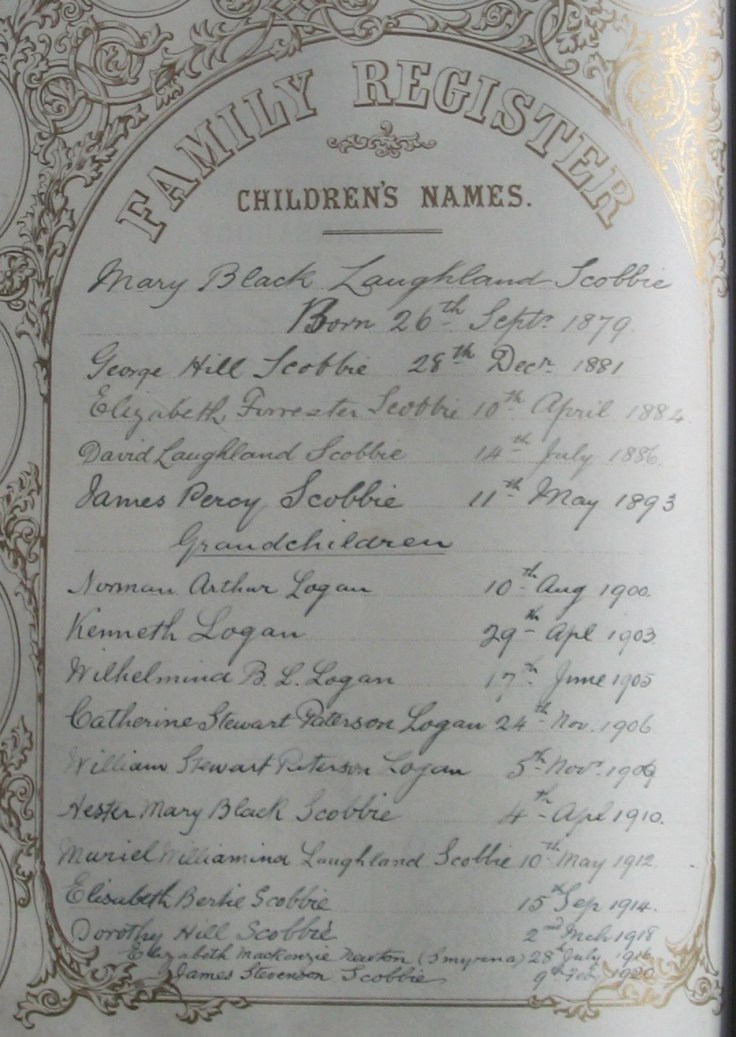 FAMILY REGISTER
CHILDREN'S NAMES.
Mary Black Laughland Scobbie
Born 26th Septr 1879.
George Hill Scobbie 28th Decr 1881
Elizabeth Forrester Scobbie 10th April 1884
David Laughland Scobbie 14th July 1886
James Percy Scobbie 11th May 1893
Grandchildren
Norman Arthur Logan 10th Aug 1900.
Kenneth Logan 29th Apl 1903
Wilhelmina B. L. Logan 17th June 1905
Catherine Stewart Paterson Logan 24th Nov. 1906
William Stewart Paterson Logan 5th Novr 1909
Hester Mary Black Scobbie 4th Apl 1910.
Muriel Williamina Laughland Scobbie 10th May 1912.
Elisabeth Bertie Scobbie 15th Sep 1914.
Dorothy Hill Scobbie 2nd Mch 1918
Elizabeth Mackenzie Newton (Smyrna) 28th July 1916
James Stevenson Scobbie 9th Feby 1920